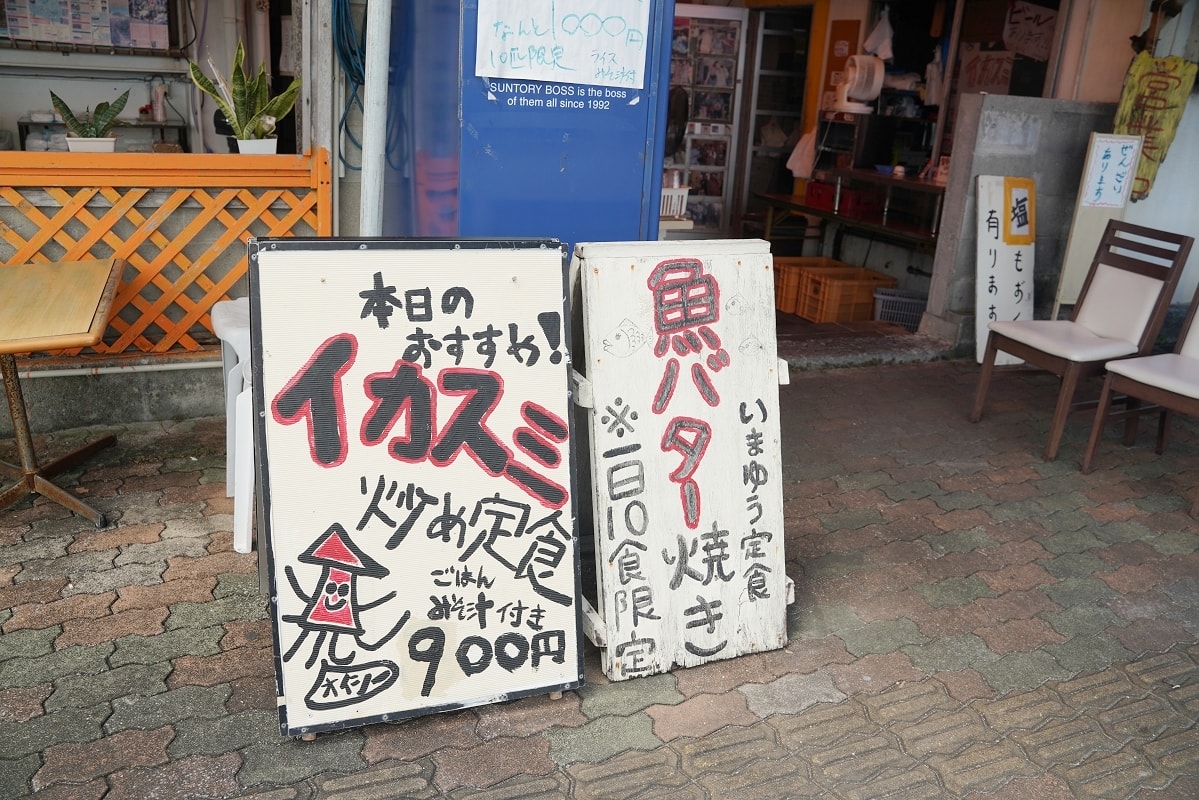 なんと1000円
10匹限定
ライス
みそ汁付
SUNTORY BOSS is the boss
of them all since 1992
本日の
おすすめ!
イカスミ
炒め定食
ごはん
みそ汁 付き
900円
オイシー
いまゆう定食
魚バター焼き
※一日10食限定
ビール
あります
ぜんざい
あります
塩もおイ
有ります